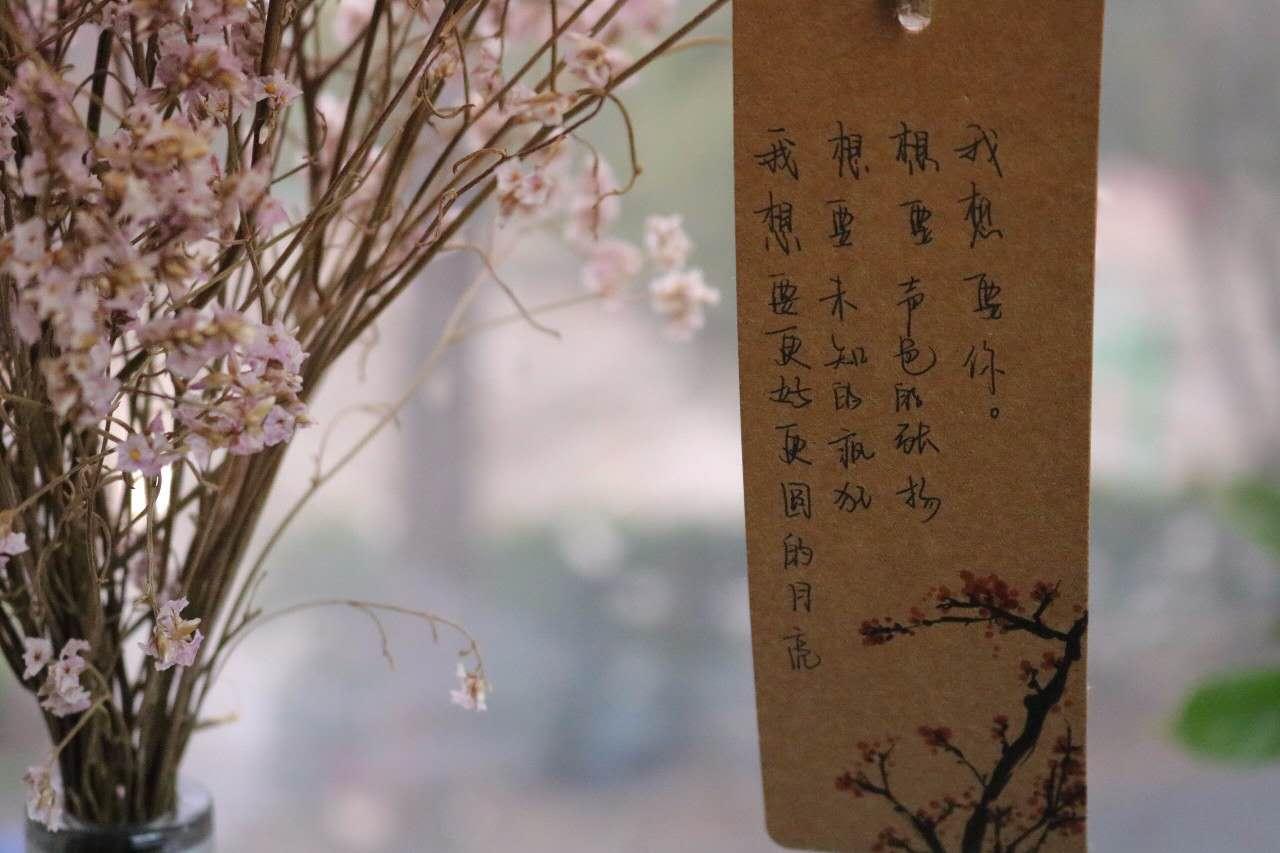 我想要更好更圆的月亮
想要未知的疯狂
想要声色的张扬
我想要你。